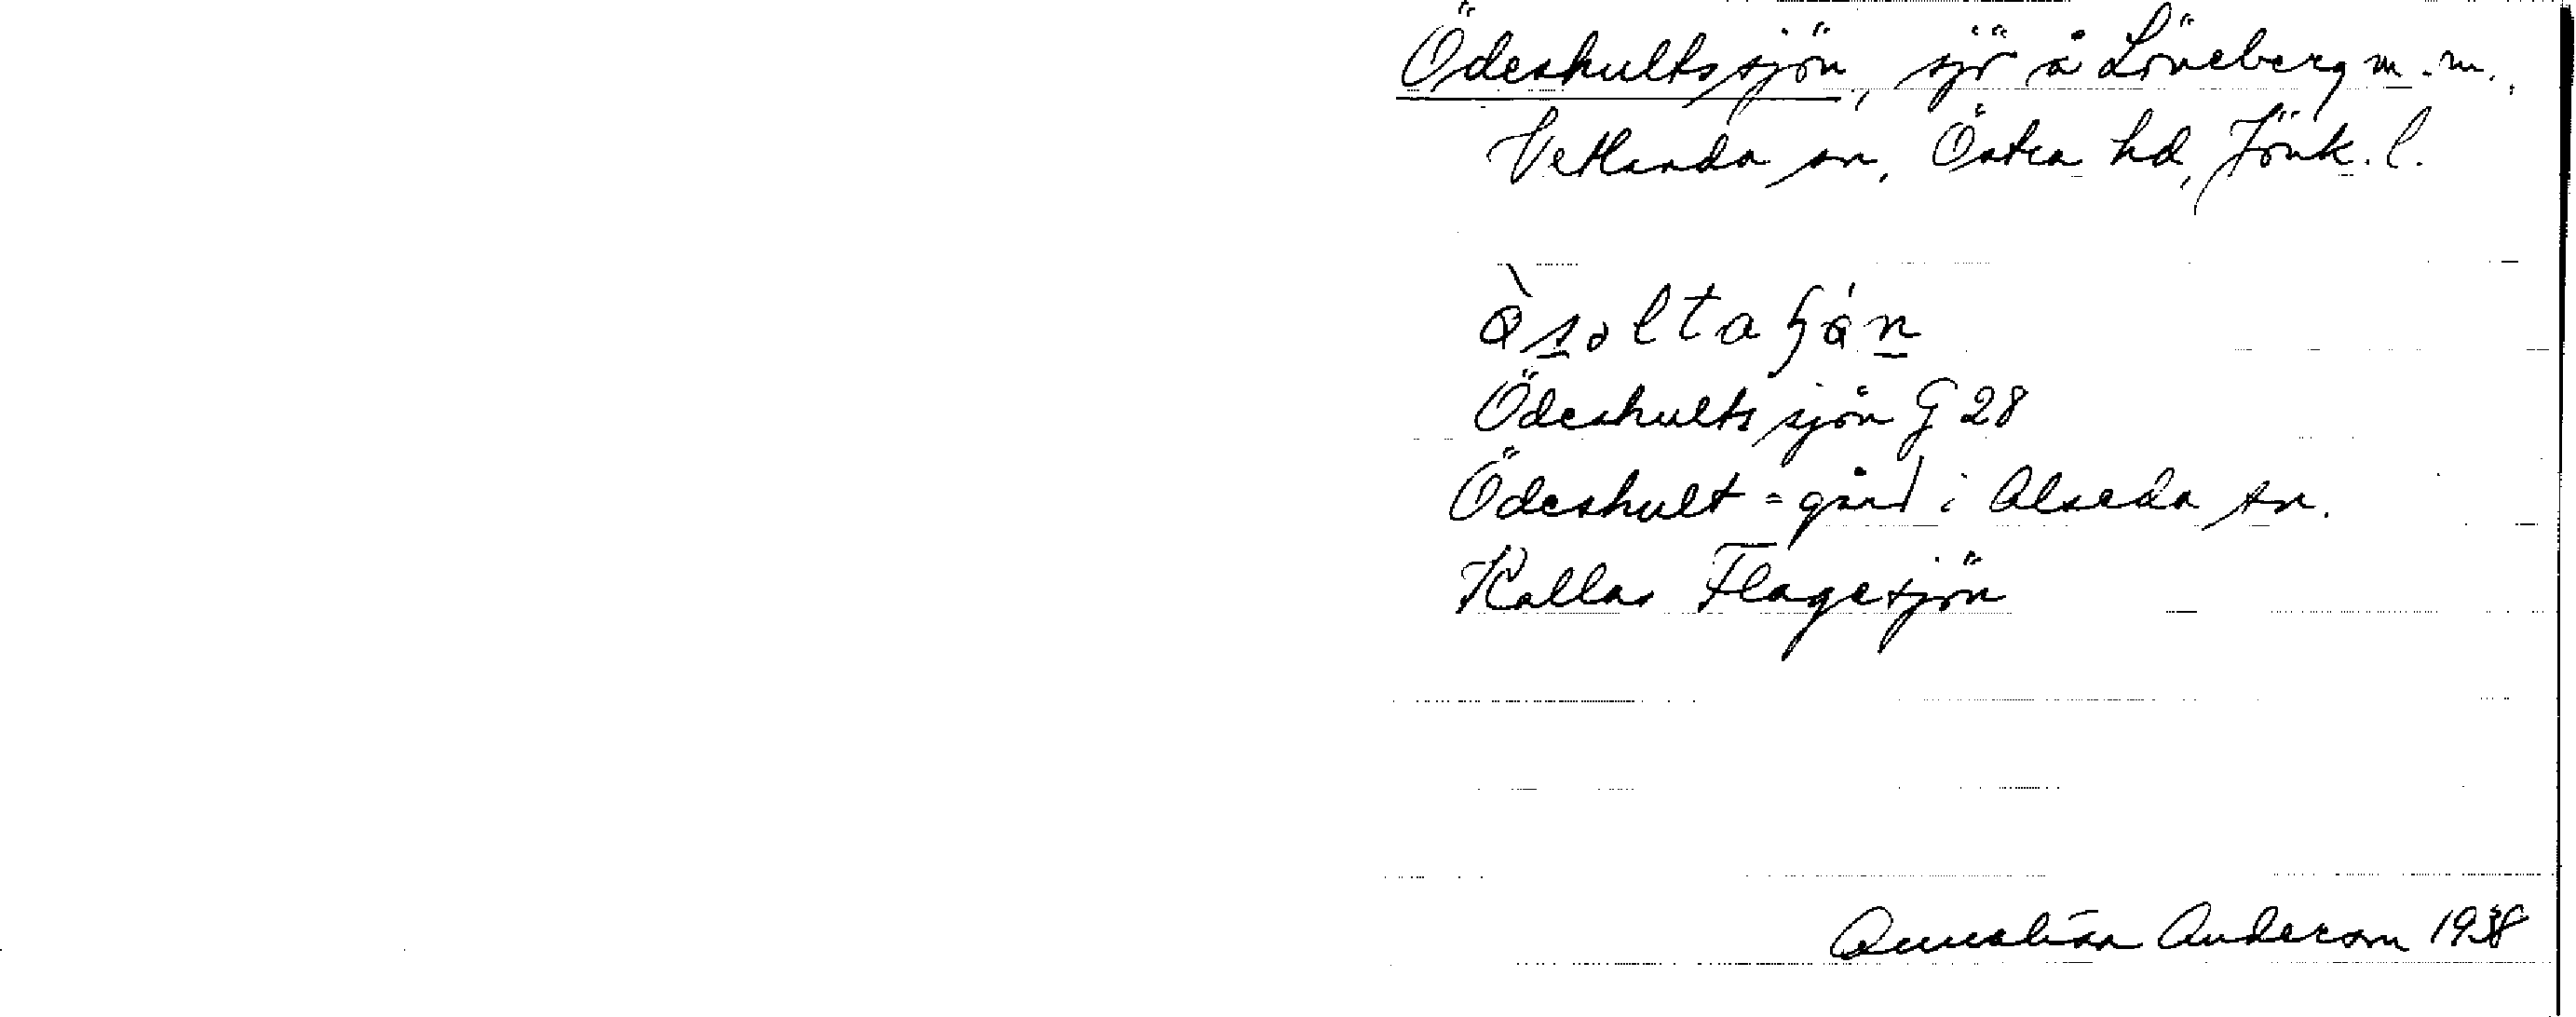 Ödeshultssjön, sjö å Löneberg m.m.,
Vetlanda sn, Östra hd, Jönk. l.
Ödeshultssjön G 28
Ödeshult = gård i Alseda sn.
Kallas Flagesjön
Annalisa Anderson 1938